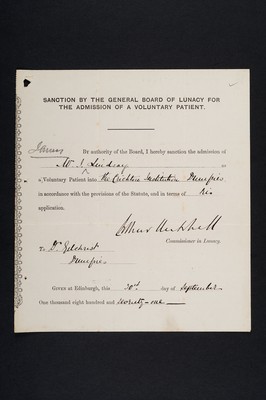 SANCTION BY THE GENERAL BOARD OF LUNACY FOR
THE ADMISSION OF A VOLUNTARY PATIENT.
James
By authority of the Board, I hereby sanction the admission of
Mr. J. Lindsay as
a Voluntary Patient into the Crichton Institution Dumfries
in accordance with the provisions of the Statute, and in terms of his
application.
Arthur Mitchell
Commissioner in Lunacy.
To Dr. Gilchrist
Dumfries
GIVEN at Edinburgh, this 20th day of September
One thousand eight hundred and seventy-one